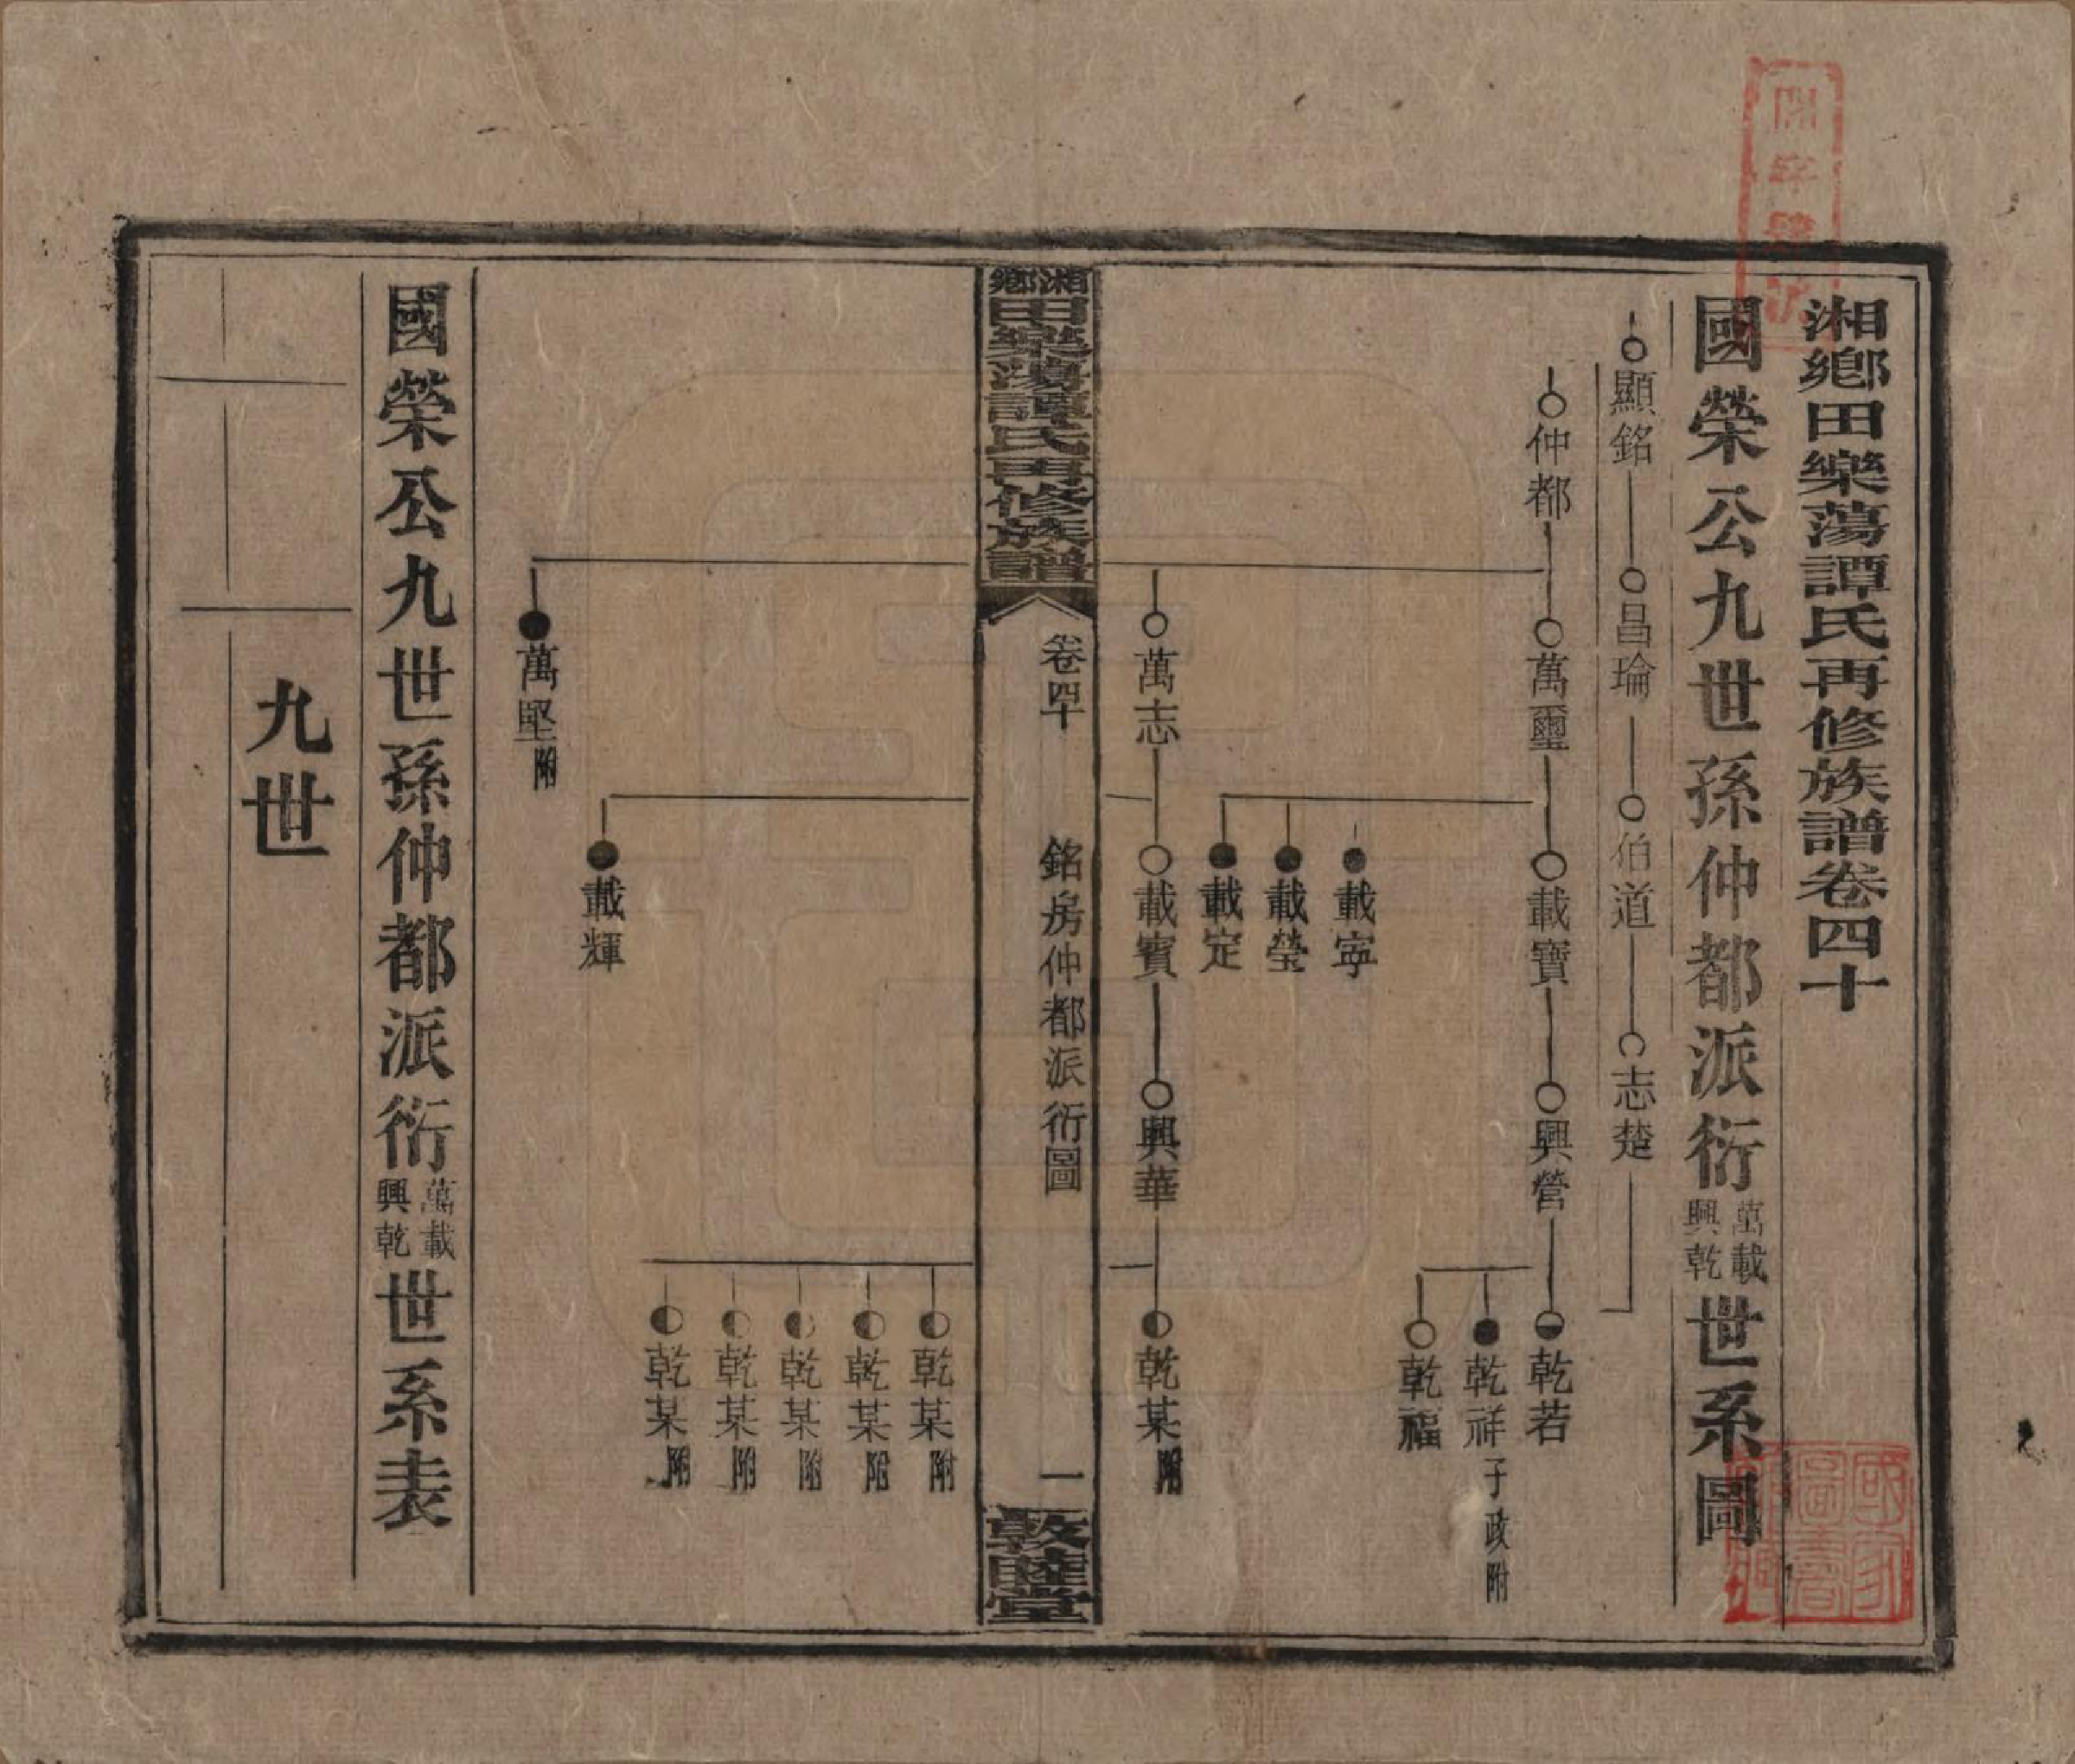 湘鄉田樂蕩譚氏再修族譜卷四十
國榮公九世孫仲都派衍萬載興乾世系圖
顯銘 昌瑜 伯道 志楚
仲都 萬璽 載寶 興營 乾若
乾祥 子政附
乾福
載寧
載瑩
載定
萬志 載賓 興華 乾某附
湘鄉田樂蕩譚氏再修族譜 卷四十 銘房仲都派衍圖 一 敦睦堂
乾某附
乾某附
乾某附
乾某附
乾某附
載輝
萬堅附
國榮公九世孫仲都派衍萬載興乾世系表
九世